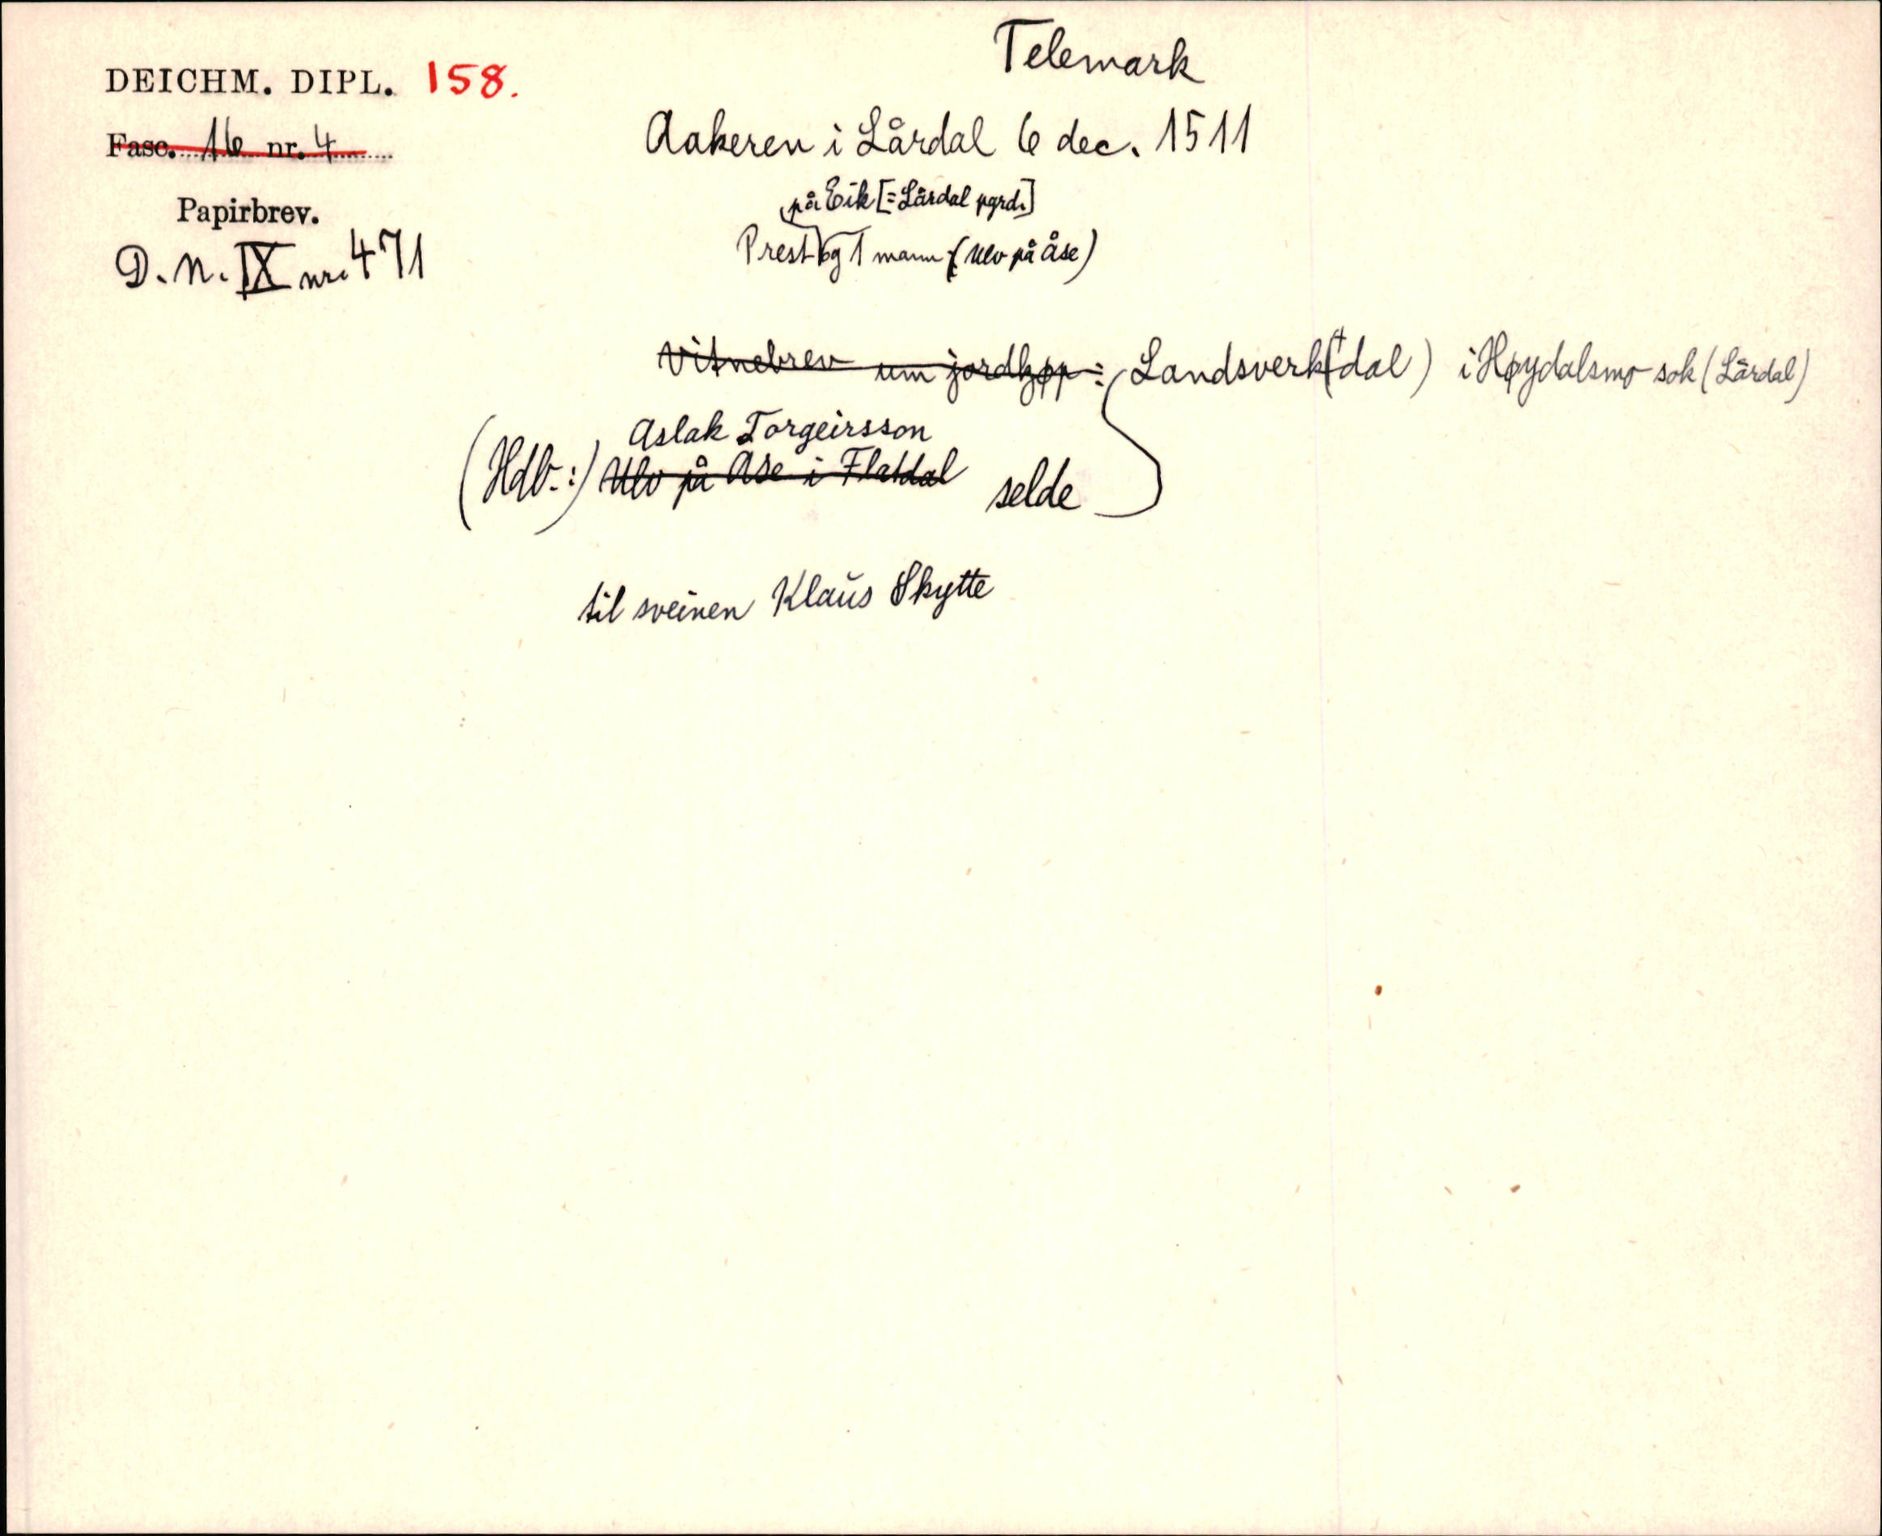 Telemark
DEICHM. DIPL. 158.
Aakeren i Lårdal 6 dec. 1511
Fasc. 16 nr. 4
på Eik [= Lårdal pgrd.]
Papirbrev.
Prest og 1 mann (Ulv på Åse)
D.N. IX nr. 471
Vitnebrev um jordkjøp: Landsverk(dal) i Høydalsmo sok (Lårdal)
Aslak Torgeirsson
(Hdl.:) Ulv på Åse i Flatdal selde
til sveinen Klaŭs Skytte